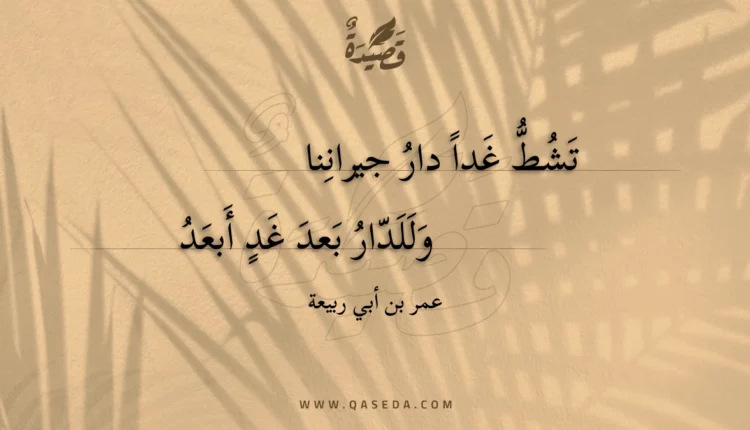 قَصِيْدَةٌ
تَشُطُّ غَداً دارُ جيرانِنا
وَلَلَدّارُ بَعدَ غَدٍ أَبعَدُ
عمر بن أبي ربيعة
WWW.QASEDA.COM